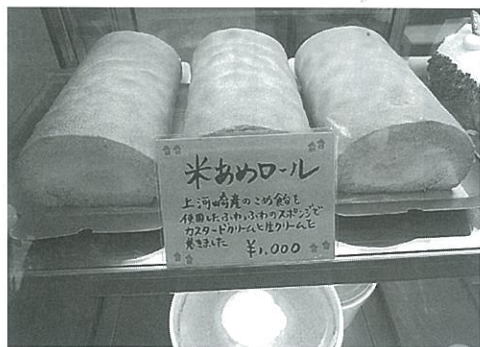 米あめロール
上河崎産のこめ飴を
使用したふわふわのスポンジで
カスタードクリームと生クリームを
巻きました
¥1,000